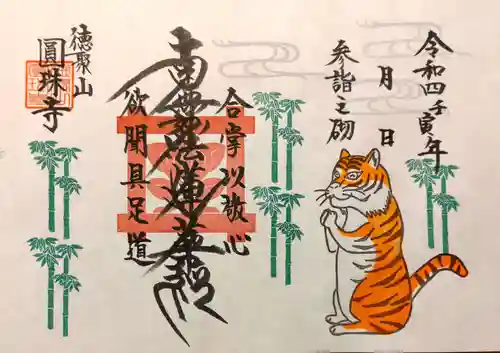 令和四壬寅年
月 日
参詣之砌
合掌以敬心
南無妙法蓮華経
欲聞具足道
徳聚山
圓珠寺